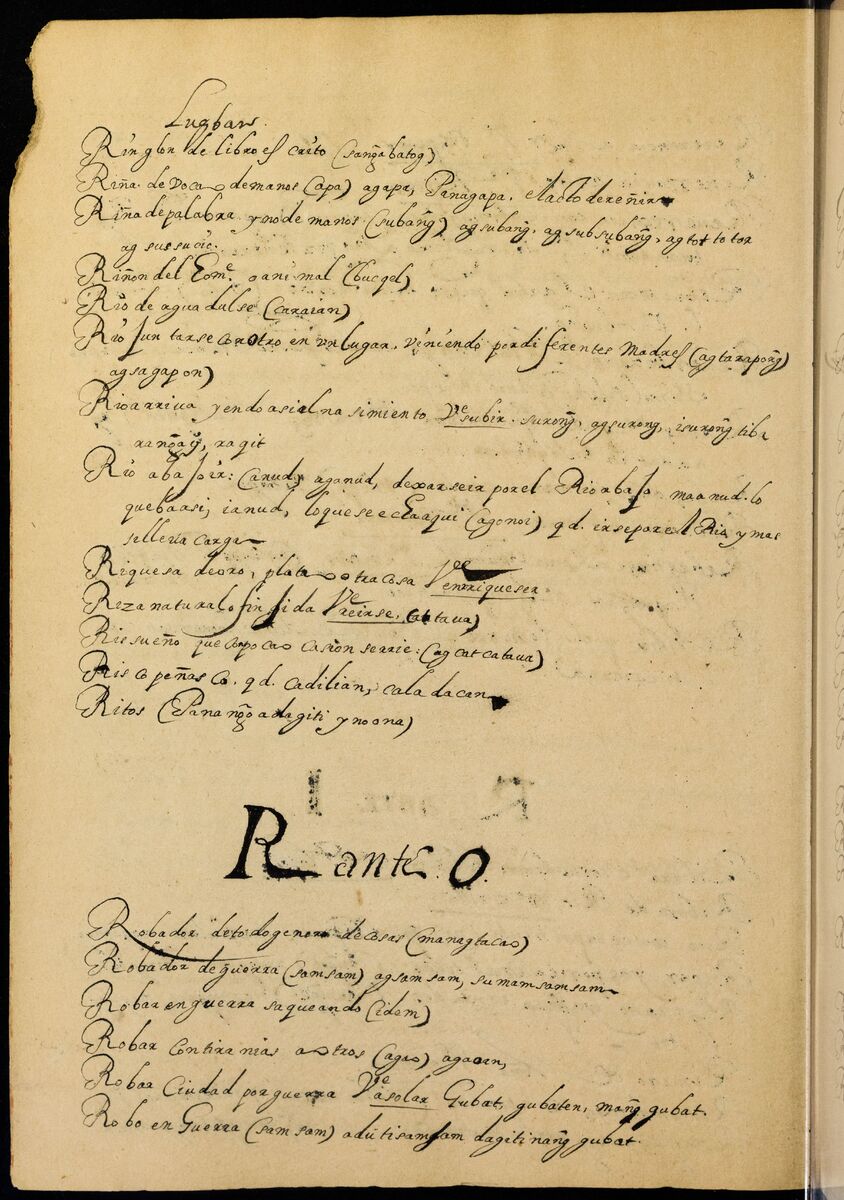 Lugbars.
Ringlon de libro escrito (sang̃abatog)
Riña. de voca o de manos (apa) agapa, Panagapa. el acto de reñir
Riña de palabra y no de manos (subang̃) agsubang̃, agsubsubang̃, agtot totor
ag sussucir.
Riñon del Eom.e o animal (bucqel)
Rio de agua dulse (caraian)
Rio Juntarse con otro en vn lugar. viniendo por diferentes Madres (agtarapong̃)
agsagapon)
Rio arriva yendo asi el nasimiento V.e subir. surong̃, agsurong, isurong̃ tibi
rang̃aÿ, ragit
Rio abaJo ir: (anud, aganud, dexarse ir por el Rio abaJo maanud. lo
que baasi, ianud, lo que se echa aqui (agonoi) q.d. irse por el Rio, y mas
si lleva carga
Riquesa de oro, plata o otra cosa V.ee enrriqueser
Riza natural o finJida V.e reirse. (catava)
Rissueño que con poca ocasion se rrie: (agcatcatava)
Risco peñasco. q.d. cadilian, caladacan
Ritos (Panang̃oadagiti ynoona)
R ante O.
Robador de todo genero de cosas (managtacao)
Robador de guerra (samsam) agsamsam, sumamsamsam
Robar en guerra saqueando (idem)
Robar con tiranias a otros (agao) agaoan,
Robar Ciudad por guerra V.e asolar Gubat, gubaten, mang̃gubat.
Robo en Guerra (samsam) adutisamsam dagitinang̃gubat.